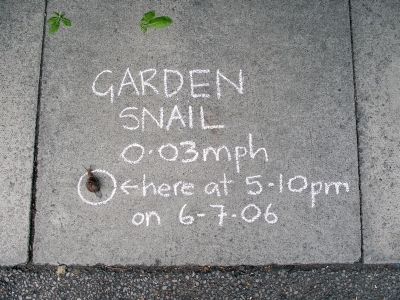 GARDEN
SNAIL
0.03mph
←here at 5.10pm
on 6-7-06